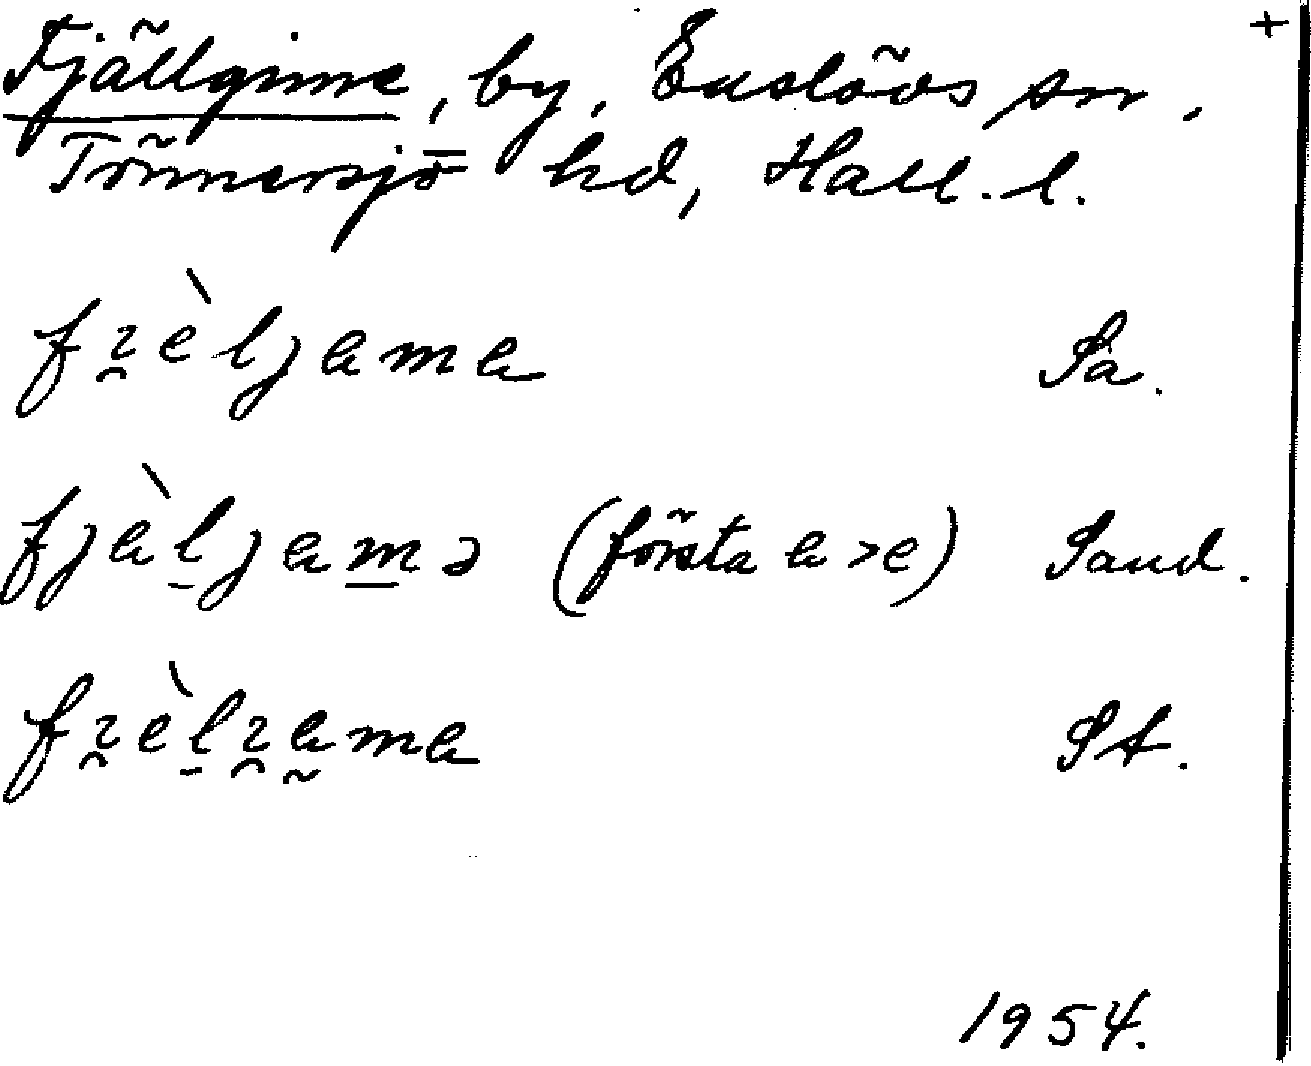 +
Fjällgime, by, Enslövs sn.
Tönnersjö hd, Hall. l.
fi̯èljama Sa.
fjàl̠jam̠ə (första a > e) Sand.
fi̯èl̠i̯a̰ma St.
1954.